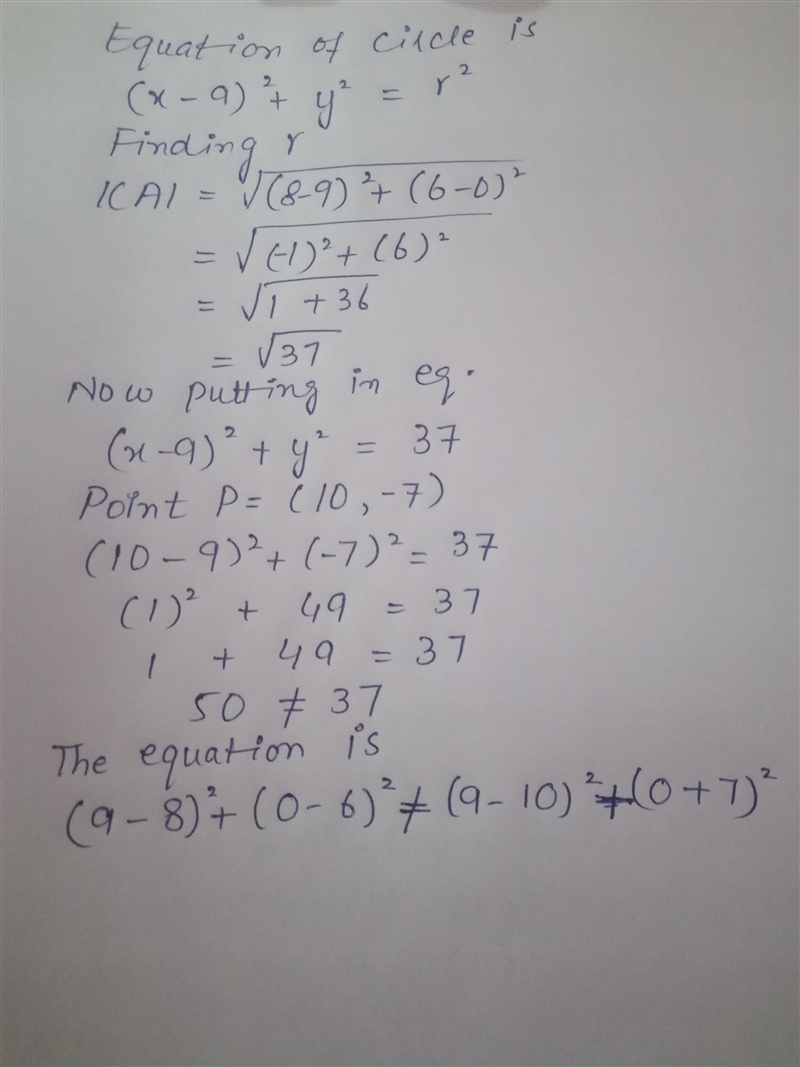 Equation of circle is
(x - 9)² + y² = r²
Finding r
|CA| = √(8-9)² + (6-0)²
= √(-1)² + (6)²
= √1 + 36
= √37
Now putting in eq.
(x-9)² + y² = 37
Point P = (10, -7)
(10 - 9)² + (-7)² = 37
(1)² + 49 = 37
1 + 49 = 37
50 ≠ 37
The equation is
(9 - 8)² + (0 - 6)² ≠ (9 - 10)² + (0 + 7)²